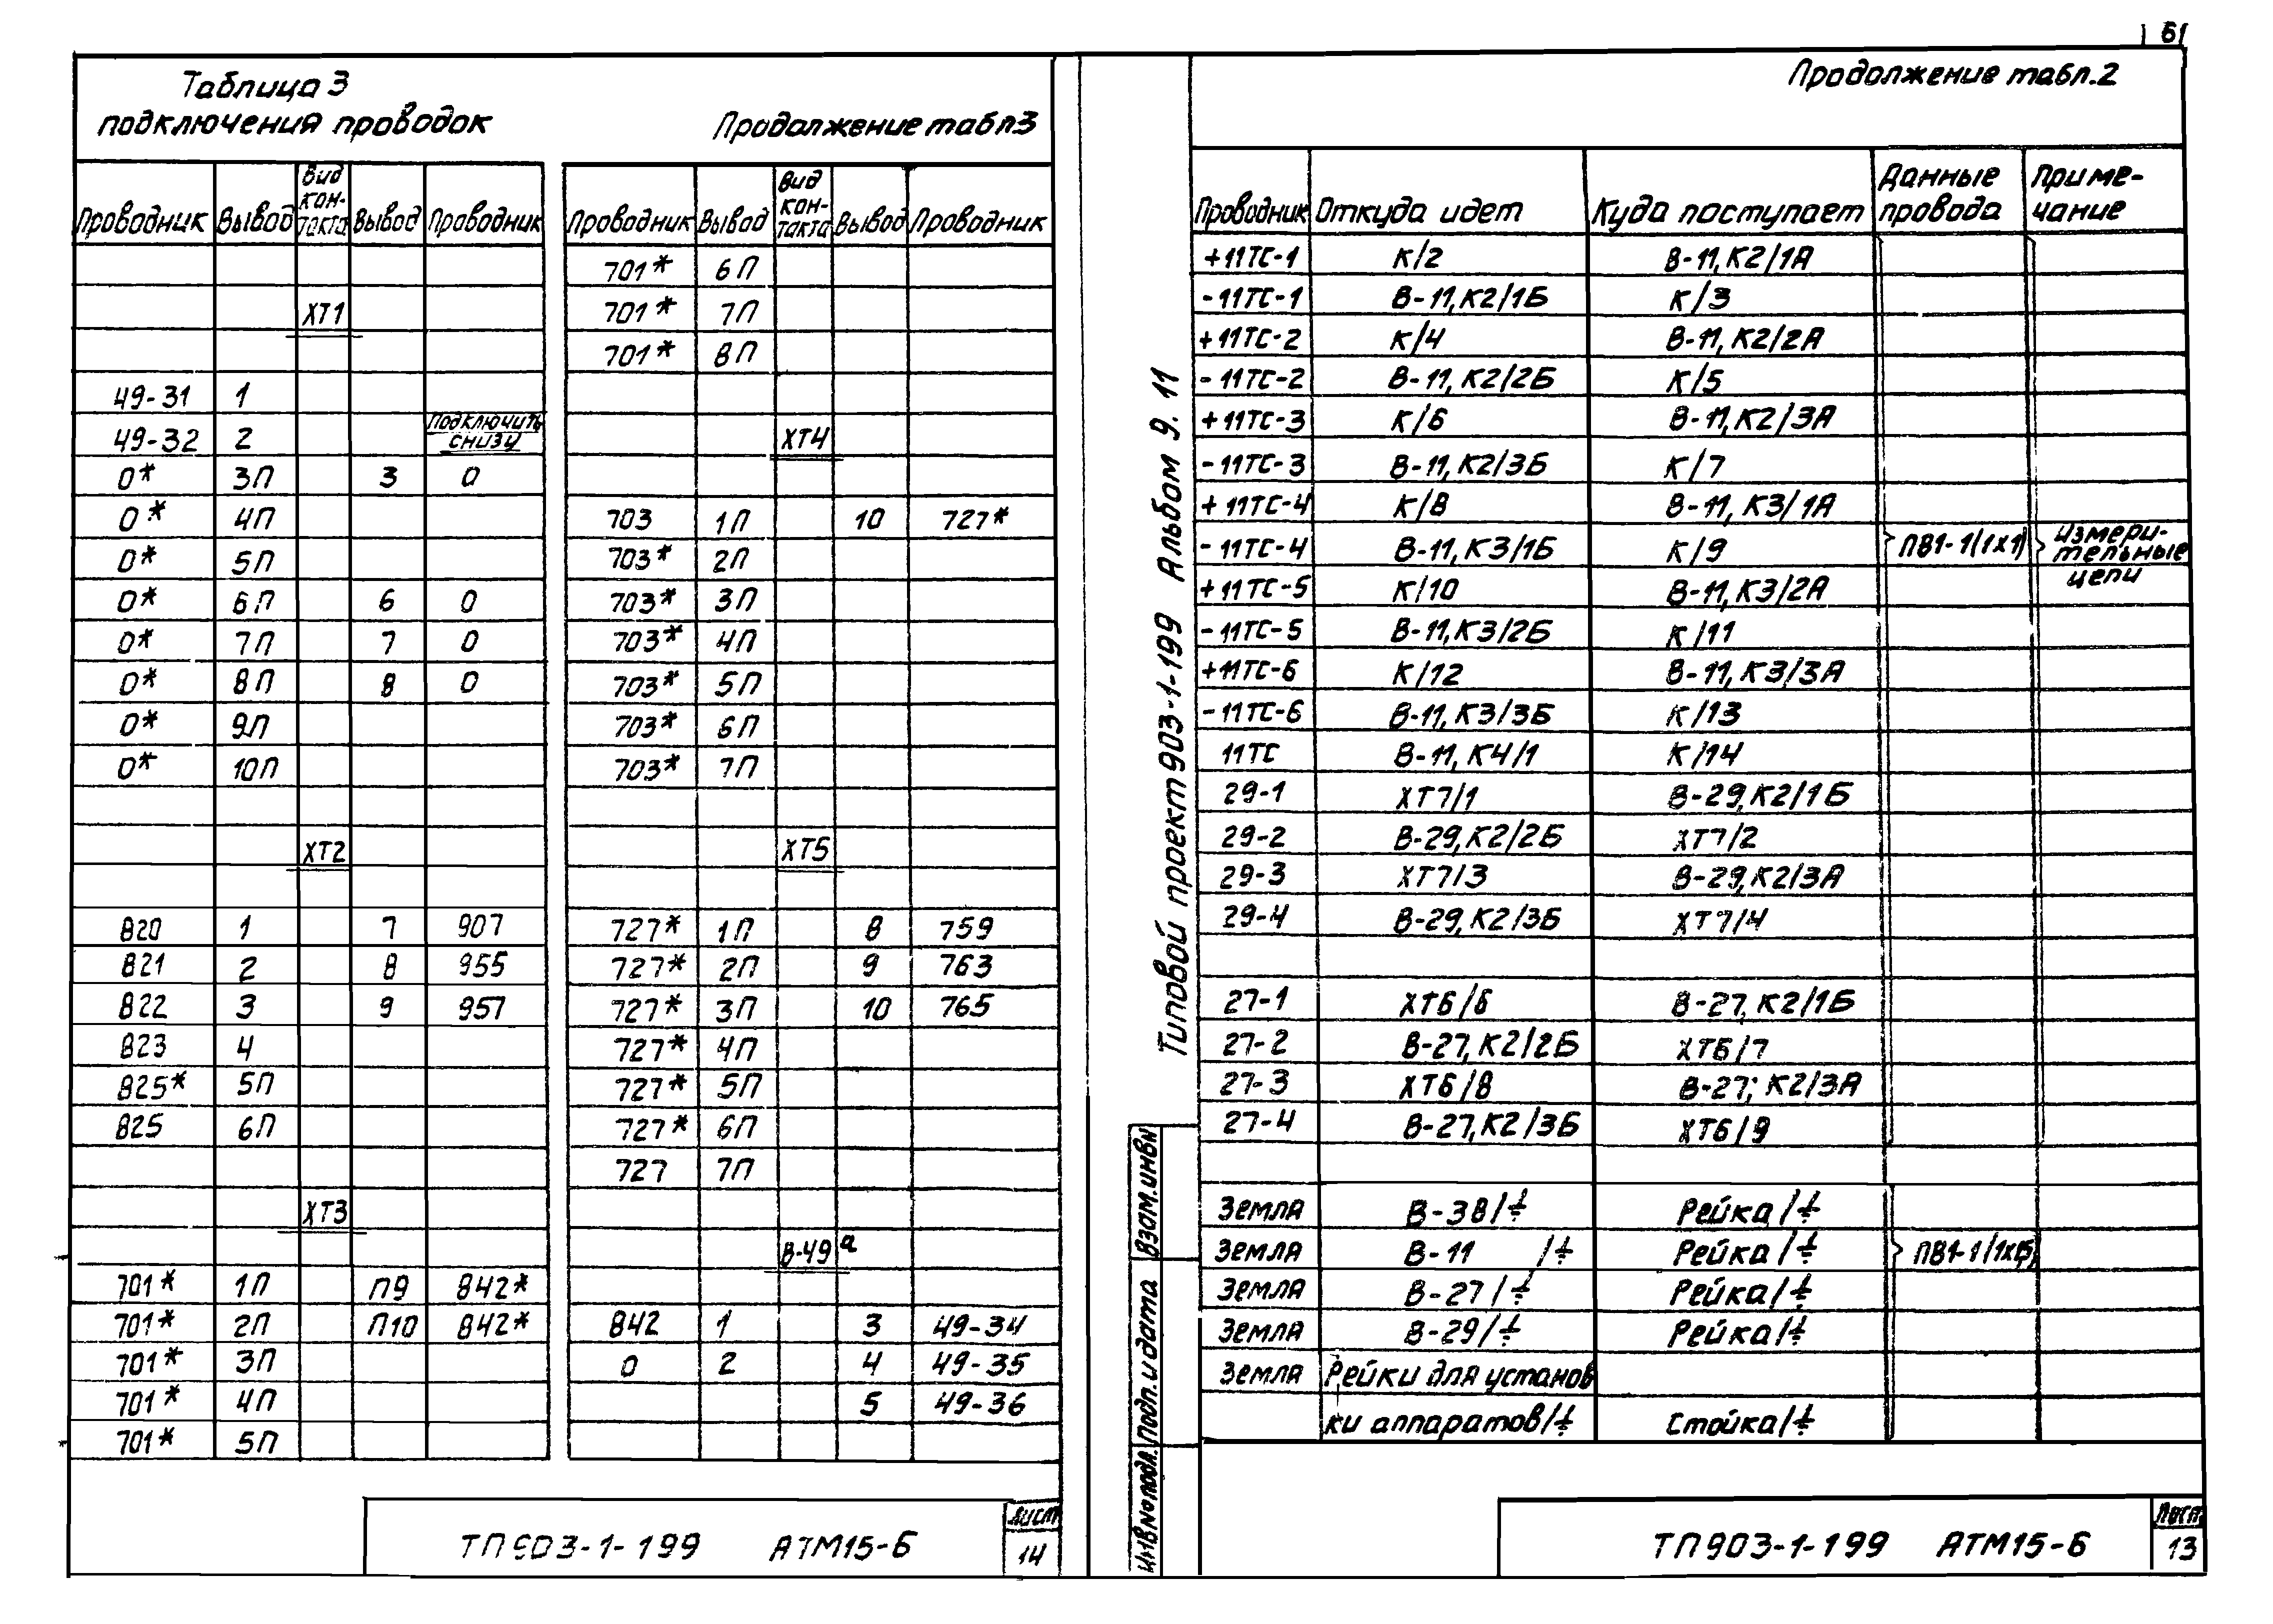 61
Таблица 3
подключения проводок
Продолжение табл3
Проводник Вывод Вид кон-такта Вывод Проводник
ХТ1
49-31 1
Подключить снизу
49-32 2
0* 3П 3 0
0* 4П
0* 5П
0* 6П 6 0
0* 7П 7 0
0* 8П 8 0
0* 9П
0* 10П
ХТ2
820 1 7 907
821 2 8 955
822 3 9 957
823 4
825* 5П
825 6П
ХТ3
701* 1П П9 842*
701* 2П П10 842*
701* 3П
701* 4П
701* 5П
Проводник Вывод Вид кон-такта Вывод Проводник
701* 6П
701* 7П
701* 8П
ХТ4
703 1П 10 727*
703* 2П
703* 3П
703* 4П
703* 5П
703* 6П
703* 7П
ХТ5
727* 1П 8 759
727* 2П 9 763
727* 3П 10 765
727* 4П
727* 5П
727* 6П
727 7П
В-49а
842 1 3 49-34
0 2 4 49-35
5 49-36
ТП903-1-199 АТМ15-6
Лист
14
Типовой проект 903-1-199 Альбом 9.11
Взам.инвN
Подп. и дата
Инв.Nоподл.
Продолжение табл.2
Проводник Откуда идет Куда поступает Данные провода Приме-чание
+11ТС-1 К/2 В-11,К2/1А
-11ТС-1 В-11,К2/1Б К/3
+11ТС-2 К/4 В-11,К2/2А
-11ТС-2 В-11,К2/2Б К/5
+11ТС-3 К/6 В-11,К2/3А
-11ТС-3 В-11,К2/3Б К/7
+11ТС-4 К/8 В-11,К3/1А
-11ТС-4 В-11,К3/1Б К/9 ПВ1-1(1х1) Измери-тельные цепи
+11ТС-5 К/10 В-11,К3/2А
-11ТС-5 В-11,К3/2Б К/11
+11ТС-6 К/12 В-11,К3/3А
-11ТС-6 В-11,К3/3Б К/13
11ТС В-11,К4/1 К/14
29-1 ХТ7/1 В-29,К2/1Б
29-2 В-29,К2/2Б ХТ7/2
29-3 ХТ7/3 В-29,К2/3А
29-4 В-29,К2/3Б ХТ7/4
27-1 ХТ6/6 В-27,К2/1Б
27-2 В-27,К2/2Б ХТ6/7
27-3 ХТ6/8 В-27,К2/3А
27-4 В-27,К2/3Б ХТ6/9
Земля В-38/⏚ Рейка/⏚
Земля В-11 /⏚ Рейка/⏚
Земля В-27/⏚ Рейка/⏚
Земля В-29/⏚ Рейка/⏚
Земля Рейки для установ
ки аппаратов/⏚ Стойка/⏚
ТП903-1-199 АТМ15-6
Лист
13